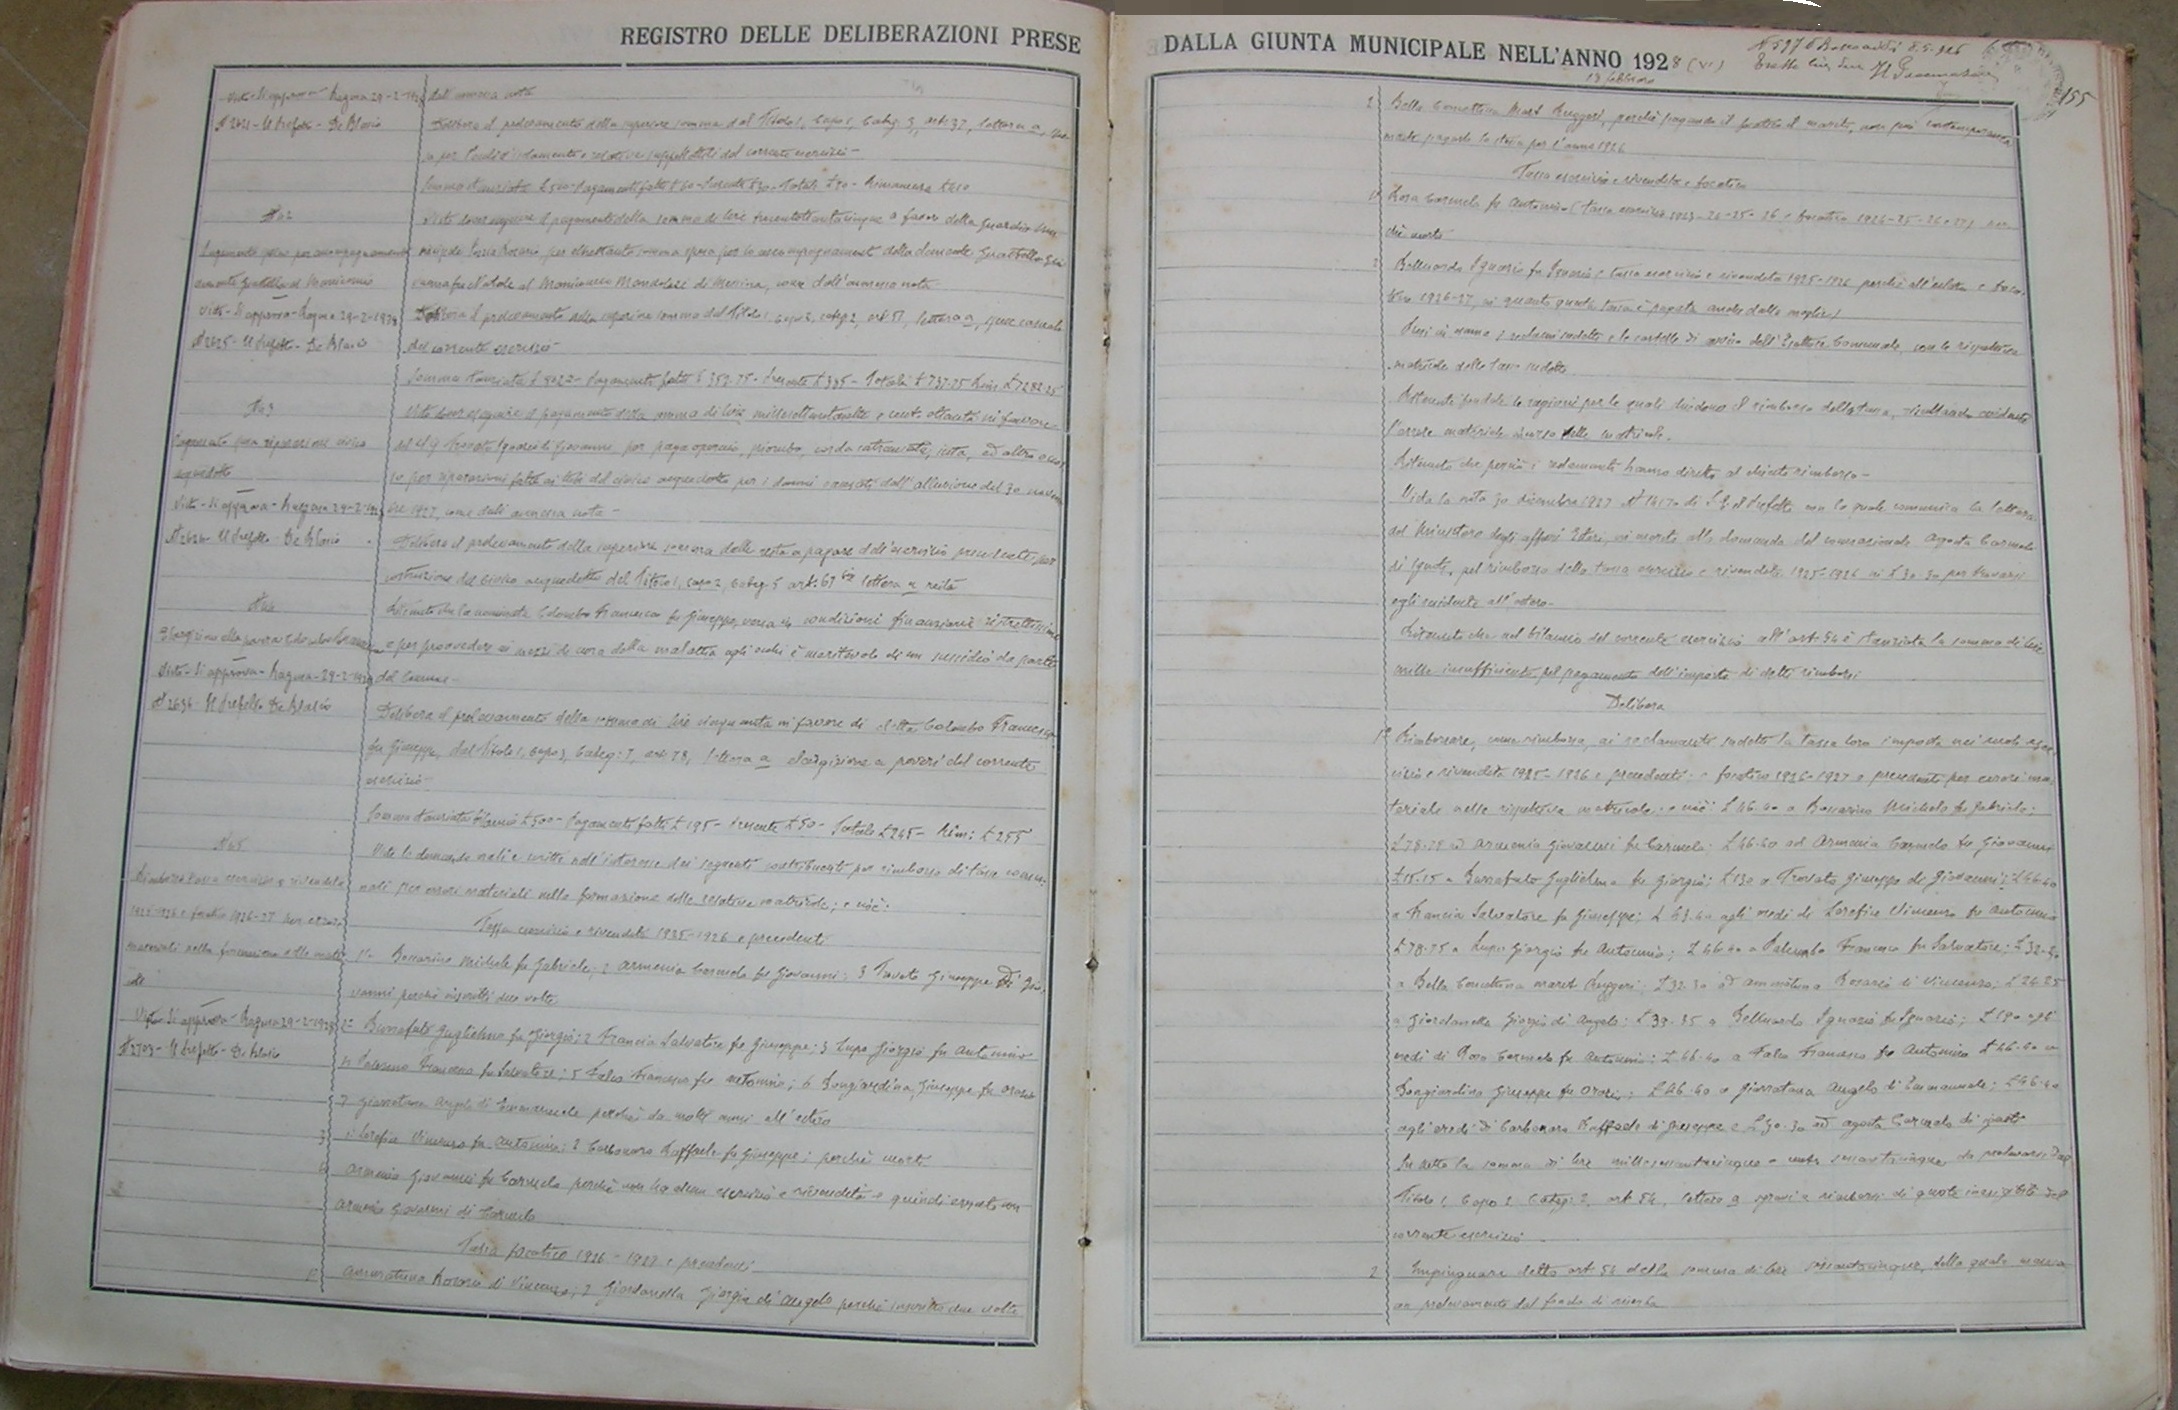 REGISTRO DELLE DELIBERAZIONI PRESE
Visto - Si approva - Ragusa 29-2-1928
N 2621 - Il Prefetto - De Blasio
dall'annessa nota
Delibera il prelevamento della superiore somma dal Titolo 1, Capo 1, Categ. 3, art. 37, lettera a, spe
sa per
e relative suppellettili del corrente esercizio -
Somma stanziata £ 500 - Pagamenti fatti £ 60 - Presente £ 30 - Totali £ 90 - Rimanenza £ 410
N 42
Pagamento spesa per accompagnamento
demente Gurattolla al Manicomio
Visto - Si approva - Ragusa 29-2-1928
N 2625 - Il Prefetto - De Blasio
Visto doversi eseguire il pagamento della somma di lire trecentottantacinque a favore della guardia mu
nicipale Rosario, per altrettanta somma spesa per lo accompagnamento della demente Gio
vanna fu Natale al Manicomio Mandalari di Messina, come dall'annessa nota
Delibera il prelevamento della superiore somma dal Titolo 1 Capo 2, categ. 2, art 51, lettera a, spese casuali
del corrente esercizio -
Somma stanziata £ - Pagamenti fatti £ 352.75 - Presente £ 385 - Totali £ 737.75 Rim. £ 7282.25
N 43
Pagamento spesa riparazione civico
acquedotto
Visto - Si approva - Ragusa 29-2-1928
N 2626 - Il Prefetto - De Blasio
Visto doversi eseguire il pagamento della somma di lire e cent. ottanta in favore
del Sig. Trovato Ignazio di Giovanni per paga operai, piombo, corda catramata, iuta, ed altro occor
so per riparazioni fatte ai tubi del civico acquedotto per i danni causati dall'alluvione del 30 novem
bre 1927, come dall'annessa nota -
Delibera il prelevamento della superiore somma delle resta a pagare dell'esercizio precedente, per
costruzione del civico acquedotto del Titolo 1, Capo 2, Categ. 5 art. 67 bis lettera a reità
N 44
Elargizione alla povera Colombo Francesca
Visto - Si approva - Ragusa - 29-2-1928
N 2636 - Il Prefetto De Blasio
Ritenuto che la nominata Colombo Francesca fu Giuseppe, versa in condizioni finanziarie ristrettissime
e per provvedere ai mezzi di cura della malattia agli occhi è meritevole di un sussidio da parte
del Comune -
Delibera il prelevamento della somma di lire cinquanta in favore di detta Colombo Francesca
fu Giuseppe, dal Titolo 1, Capo 3, Categ: 7, art. 78, lettera a elargizione a poveri del corrente
esercizio -
Somma stanziata Bilancio £ 500 - Pagamenti fatti £ 195 - Presente £ 50 - Totale £ 245 - Rim: £ 255
N 45
Rimborso tassa esercizio e rivendita
1925-1926 e focatico 1926-27 per errori
materiali nella formazione delle matri
cole
Visto - Si approva - Ragusa 29-2-1928
N 2703 - Il Prefetto - De Blasio
Viste le domande orali e scritte nell'interesse dei seguenti contribuenti per rimborso di tasse comu-
nali per errori materiali nella formazione delle relative matricole; e cioè:
Tassa esercizio e rivendita 1925-1926 e precedenti
1° Boscarino Michele fu Gabriele; 2 Armenia Carmelo fu Giovanni; 3 Trovato Giuseppe di Gio.
vanni perchè inscritti due volte
2° Burrafato Guglielmo fu Giorgio; 2 Francia Salvatore fu Giuseppe; 3 Lupo Giorgio fu Antonino
4 Palermo Francesco fu Salvatore; 5 Falco Francesco fu Antonino; 6 Bongiardina Giuseppe fu Orazio
7 Giarratana Angelo di Emmanuele perchè da molti anni all'estero
3° 1 Lorefice Vincenzo fu Antonino; 2 Carbonaro Raffaele fu Giuseppe; perchè morti
4 Armenia Giovanni fu Carmelo perchè non ha alcun esercizio e rivendita e quindi errato con
Armenia Giovanni di Carmelo
Tassa focatico 1926 - 1927 e precedenti
1° Ammatuna Rosario di Vincenzo; 2 Giordanella Giorgio di Angelo perchè inscritto due volte
DALLA GIUNTA MUNICIPALE NELL'ANNO 1928 (VI)
18 febbraio
155
2 Bella Concettina Marit Ruggeri, perchè pagando il focatico il marito, non può contemporanea
mente pagarlo la stessa per l'anno 1926
Tassa esercizio e rivendita e focatico
1° Rosa Carmelo fu Antonio (Tassa esercizio 1923-24-25-26 e focatico 1924-25-26-27) per
chè morto
2 Belluardo Ignazio fu Ignazio (tassa esercizio e rivendita 1925-1926 perchè all'estero e foca-
tico 1926-27, in quanto quest'tassa è pagata anche dalla moglie)
Presi in esame i reclami suddetti e le cartelle di avviso dell'Esattore Comunale, con le rispettive
matricole delle tasse suddette
Ritenute fondate le ragioni per le quali chiedono il rimborso della tassa, risultando evidente
l'errore materiale incorso nelle matricole.
Ritenuto che perciò i reclamanti hanno diritto al chiesto rimborso -
Vista la nota 30 dicembre 1927 N di S.E. il Prefetto con la quale comunica la lettera
del Ministero degli affari Esteri, in merito alla domanda del connazionale Agosta Carmelo
di pel rimborso della tassa esercizio e rivendita 1925-1926 in £ 30.30 per trovarsi
egli residente all'estero -
Ritenuto che nel bilancio del corrente esercizio all'art. 54 è stanziata la somma di lire
mille insufficiente pel pagamento dell'importo di detti rimborsi
Delibera
1° Rimborsare, come rimborsa, ai reclamanti suddetti la tassa loro imposta nei ruoli eser
cizio e rivendita 1925-1926 e precedenti e focatico 1926-1927 e precedenti per errori ma
teriali nelle rispettive matricole: e cioè: £ 46.40 a Boscarino Michele fu Gabriele;
£ 78.75 ad Armenia Giovanni fu Carmelo; £ 46.40 ad Armenia Carmelo fu Giovanni
£ 15.15 a Burrafato Guglielmo fu Giorgio; £ 130 a Trovato Giuseppe di Giovanni; £ 46.40
a Francia Salvatore fu Giuseppe; £ 63.60 agli eredi di Lorefice Vincenzo fu Antonino
£ 78.75 a Lupo Giorgio fu Antonino; £ 46.40 a Palermo Francesco fu Salvatore; £ 32.30
a Bella Concettina marit Ruggeri; £ 32.30 ad Ammatuna Rosario di Vincenzo; £ 24.25
a Giordanella Giorgio di Angelo; £ 33.35 a Belluardo Ignazio fu Ignazio; £ 190 agli
eredi di Rosa Carmelo fu Antonino; £ 46.40 a Falco Francesco fu Antonino £ 46.40 a
Bongiardina Giuseppe fu Orazio; £ 46.40 a Giarratana Angelo di Emmanuele; £ 46.40
agli eredi di Carbonaro Raffaele di Giuseppe e £ 30.30 ad Agosta Carmelo di
In tutto la somma di lire millesessantacinque e cent. sessantacinque da prelevarsi dal
Titolo 1, Capo 1 Categ: 2, art 54, lettera a sgravi e rimborsi di quote inesigibili del
corrente esercizio
2 Impinguare detto art. 54 della somma di lire sessantacinque, della quale
un prelevamento dal fondo di riserva